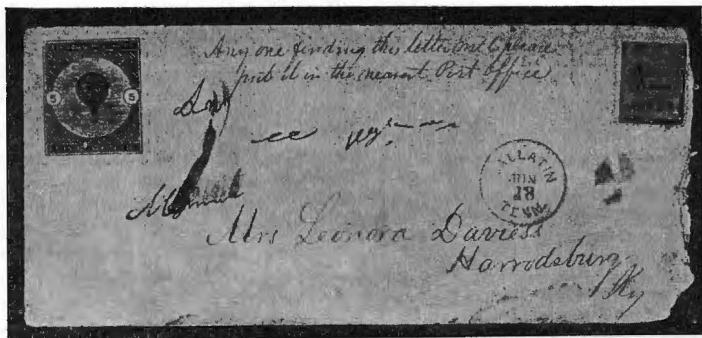 Any one finding this letter please
put it in the nearest Post Office
5 5
GALLATIN
JUN
18
TENN.
Mrs Leonora Daviess
Harrodsburg
Ky